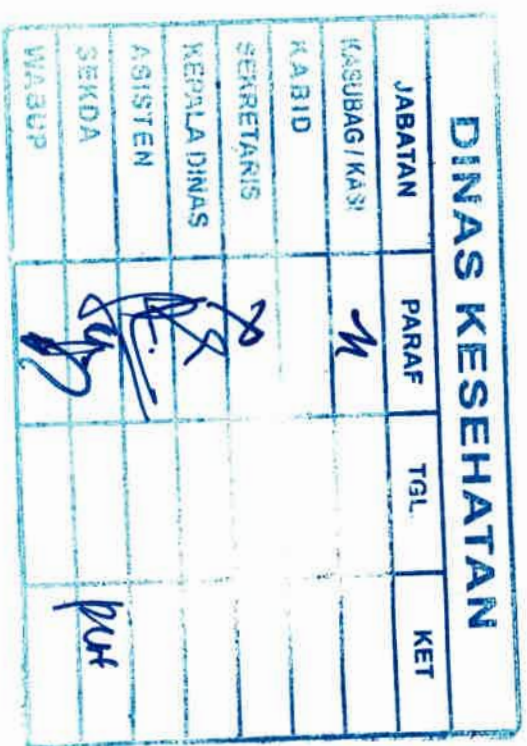 DINAS KESEHATAN
JABATAN PARAF TGL. KET
KASUBAG / KASI
KABID
SEKRETARIS
KEPALA DINAS
ASISTEN
SEKDA
WABUP